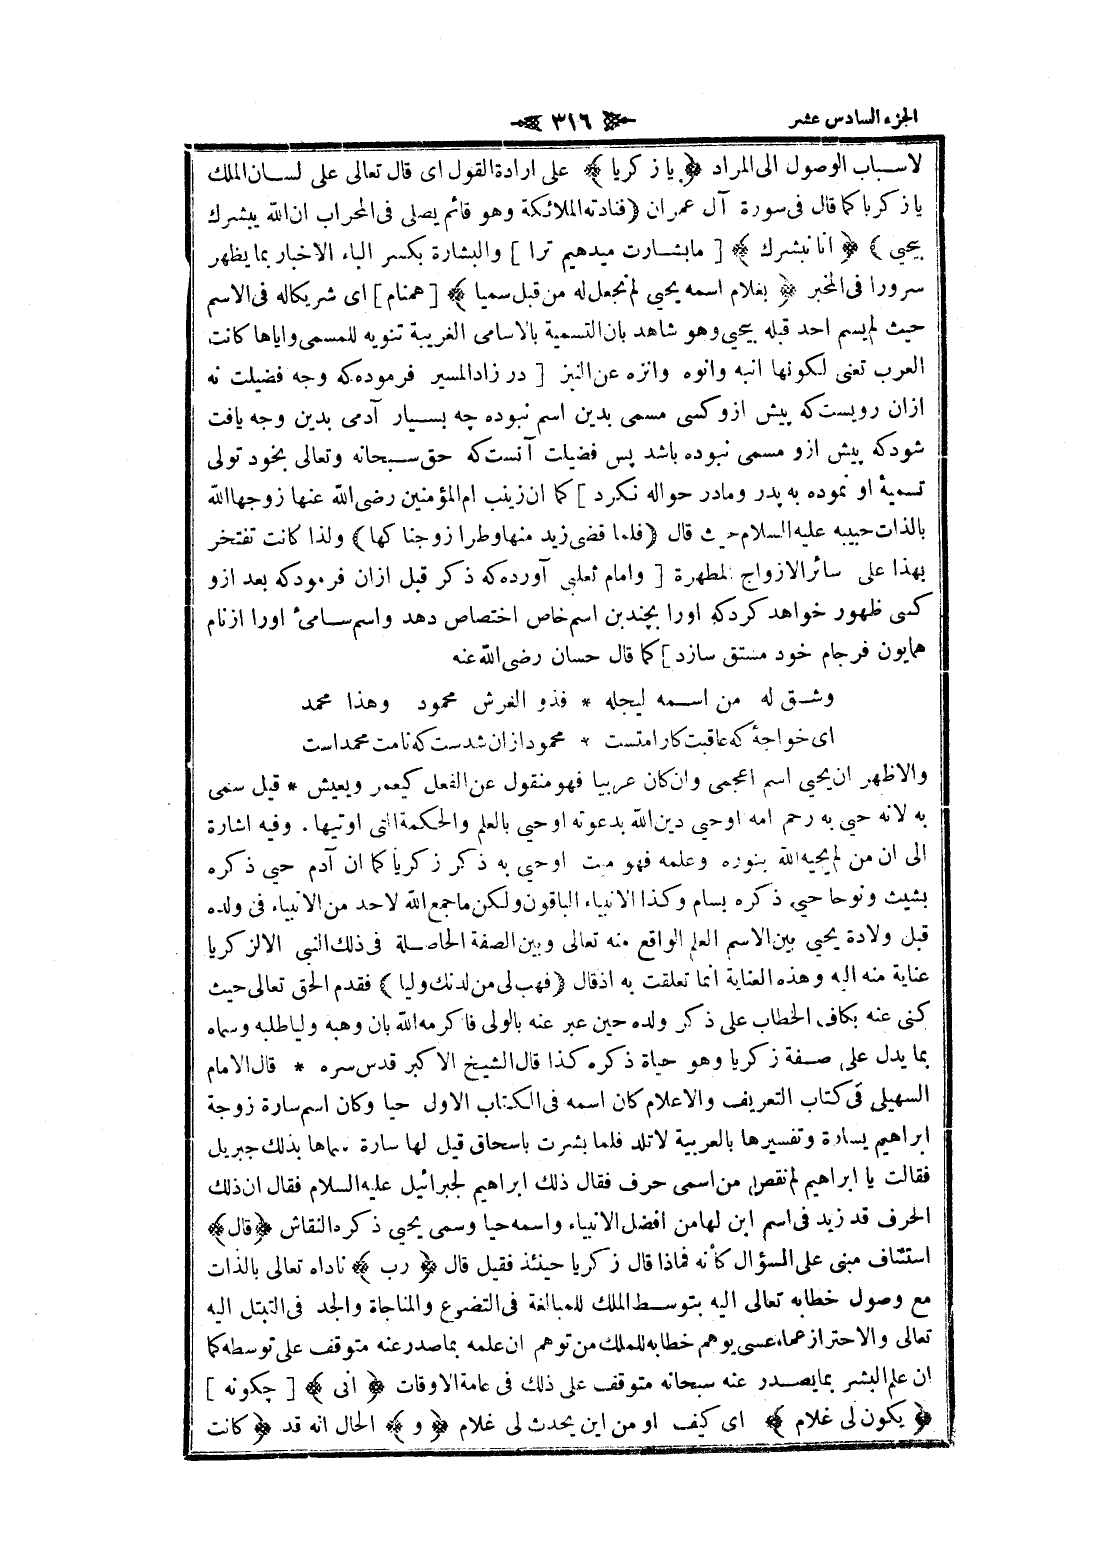 الجزء السادس عشر ﴿ ٣١٦ ﴾
لاسباب الوصول الى المراد ﴿ يا زكريا ﴾ على ارادة القول اى قال تعالى على لسان الملك
يا زكريا كما قال فى سورة آل عمران ( فنادته الملائكة وهو قائم يصلى فى المحراب ان الله يبشرك
بيحيى ) ﴿ انا نبشرك ﴾ [ ما بشارت ميدهيم ترا ] والبشارة بكسر الباء الاخبار بما يظهر
سرورا فى المخبر ﴿ بغلام اسمه يحيى لم نجعل له من قبل سميا ﴾ [ همنام ] اى شريكا له فى الاسم
حيث لم يسم احد قبله بيحيى وهو شاهد بان التسمية بالاسامى الغريبة تنويه للمسمى واياها كانت
العرب تعنى لكونها انبه وانوه وانزه عن النبز [ در زاد المسير فرموده كه وجه فضيلت نه
ازان رويست كه پيش ازو كسى مسمى بدين اسم نبوده چه بسيار آدمى بدين وجه يافت
شود كه پيش ازو مسمى نبوده باشد پس فضيلت آنست كه حق سبحانه وتعالى بخود تولى
تسميۀ او نموده به پدر ومادر حواله نكرد ] كما ان زينب ام المؤمنين رضى الله عنها زوجها الله
بالذات حبيبه عليه السلام حيث قال ( فلما قضى زيد منها وطرا زوجنا كها ) ولذا كانت تفتخر
بهذا على سائر الازواج المطهرة [ وامام ثعلبى آورده كه ذكر قبل ازان فرمود كه بعد ازو
كسى ظهور خواهد كرد كه اورا بچندين اسم خاص اختصاص دهد واسم سامئ اورا از نام
همايون فرجام خود مستق سازد ] كما قال حسان رضى الله عنه
وشق له من اسمه ليجله * فذو العرش محمود وهذا محمد
اى خواجۀ كه عاقبت كار امتست * محمود ازان شدست كه نامت محمد است
والاظهر ان يحيى اسم اعجمى وان كان عربيا فهو منقول عن الفعل كيعمر ويعيش * قيل سمى
به لانه حيى به رحم امه او حيى دين الله بدعوته او حيى بالعلم والحكمة التى اوتيها . وفيه اشارة
الى ان من لم يحيه الله بنوره وعلمه فهو ميت او حيى به ذكر زكريا كما ان آدم حيى ذكره
بشيث ونوحا حيى ذكره بسام وكذا الانبياء الباقون ولكن ما جمع الله لاحد من الانبياء فى ولده
قبل ولادة يحيى بين الاسم العلم الواقع منه تعالى وبين الصفة الحاصلة فى ذلك النبى الا لزكريا
عناية منه اليه وهذه العناية انما تعلقت به اذ قال ( فهب لى من لدنك وليا ) فقدم الحق تعالى حيث
كنى عنه بكاف الخطاب على ذكر ولده حين عبر عنه بالولى فاكرمه الله بان وهبه ولياطلبه وسماه
بما يدل على صفة زكريا وهو حياة ذكره كذا قال الشيخ الاكبر قدس سره * قال الامام
السهيلى فى كتاب التعريف والاعلام كان اسمه فى الكتاب الاول حيا وكان اسم سارة زوجة
ابراهيم يسارة وتفسيرها بالعربية لا تلد فلما بشرت باسحاق قيل لها سارة سماها بذلك جبريل
فقالت يا ابراهيم لم نقص من اسمى حرف فقال ذلك ابراهيم لجبرائيل عليه السلام فقال ان ذلك
الحرف قد زيد فى اسم ابن لها من افضل الانبياء واسمه حيا وسمى يحيى ذكره النقاش ﴿ قال ﴾
استئناف مبنى على السؤال كأنه فماذا قال زكريا حينئذ فقيل قال ﴿ رب ﴾ ناداه تعالى بالذات
مع وصول خطابه تعالى اليه بتوسط الملك للمبالغة فى التضرع والمناجاة والجد فى التبتل اليه
تعالى والاحتراز عما عسى يوهم خطابه للملك من توهم ان علمه بما صدر عنه متوقف على توسطه كما
ان علم البشر بما يصدر عنه سبحانه متوقف على ذلك فى عامة الاوقات ﴿ انى ﴾ [ چكونه ]
﴿ يكون لى غلام ﴾ اى كيف او من اين يحدث لى غلام ﴿ و ﴾ الحال انه قد ﴿ كانت